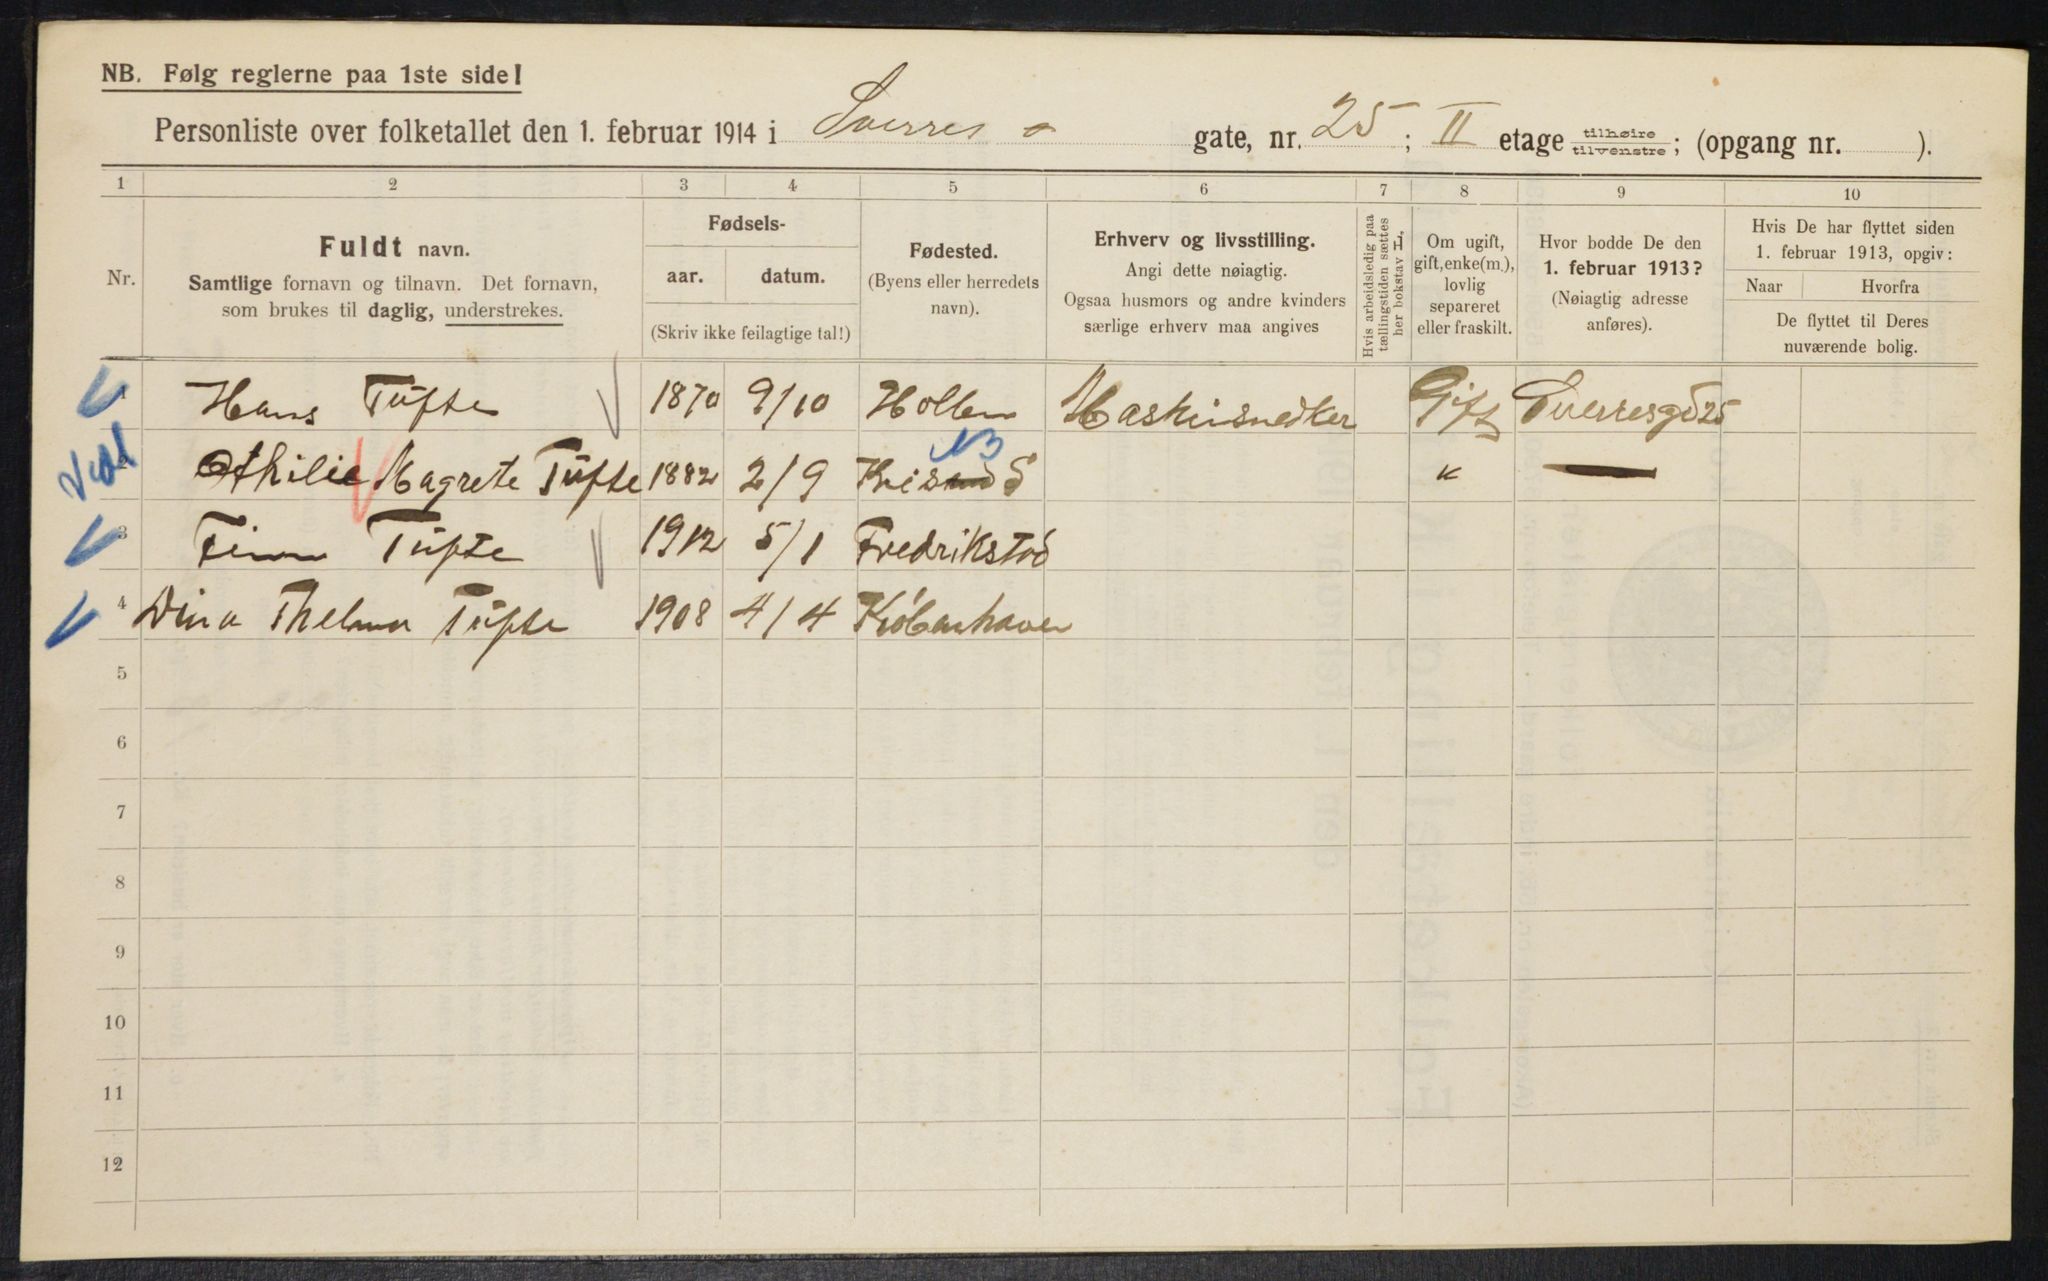 NB. Følg reglerne paa 1ste side!
Personliste over folketallet den 1. februar 1914 i Sverres gate, nr. 25; II etage tilhøire tilvenstre; (opgang nr. ).
1 2 3 4 5 6 7 8 9 10
Nr.
Fuldt navn.
Samtlige fornavn og tilnavn. Det fornavn,
som brukes til daglig, understrekes.
Fødsels-
aar. datum.
(Skriv ikke feilagtige tal!)
Fødested.
(Byens eller herredets
navn).
Erhverv og livsstilling.
Angi dette nøiagtig.
Ogsaa husmors og andre kvinders
særlige erhverv maa angives
Hvis arbeidsledig paa
tællingstiden sættes
her bokstav L.
Om ugift,
gift, enke(m.),
lovlig
separeret
eller fraskilt.
Hvor bodde De den
1. februar 1913?
(Nøiagtig adresse
anføres).
Hvis De har flyttet siden
1. februar 1913, opgiv:
Naar Hvorfra
De flyttet til Deres
nuværende bolig.
1 Hans Tufte 1870 9/10 Hollen Maskinsnedker Gift Sverresgd 25
NB
2 Othilie Magrete Tufte 1882 2/9 Krisand S "
3 Finn Tufte 1912 5/1 Fredrikstad
4 Dina Thelma Tufte 1908 4/4 Københaven
5
6
7
8
9
10
11
12